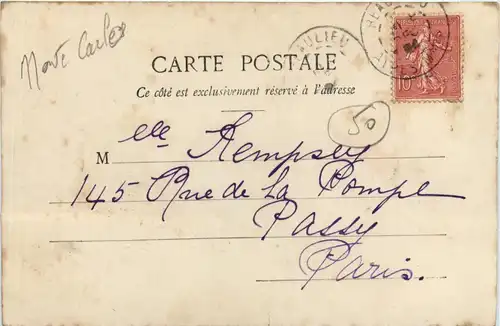 Monte Carlo
BEAULIEU
CARTE POSTALE
Ce côté est exclusivement réservé à l'adresse
50
10
Melle Kempsey
145 Rue de La Pompe
Passy
Paris.